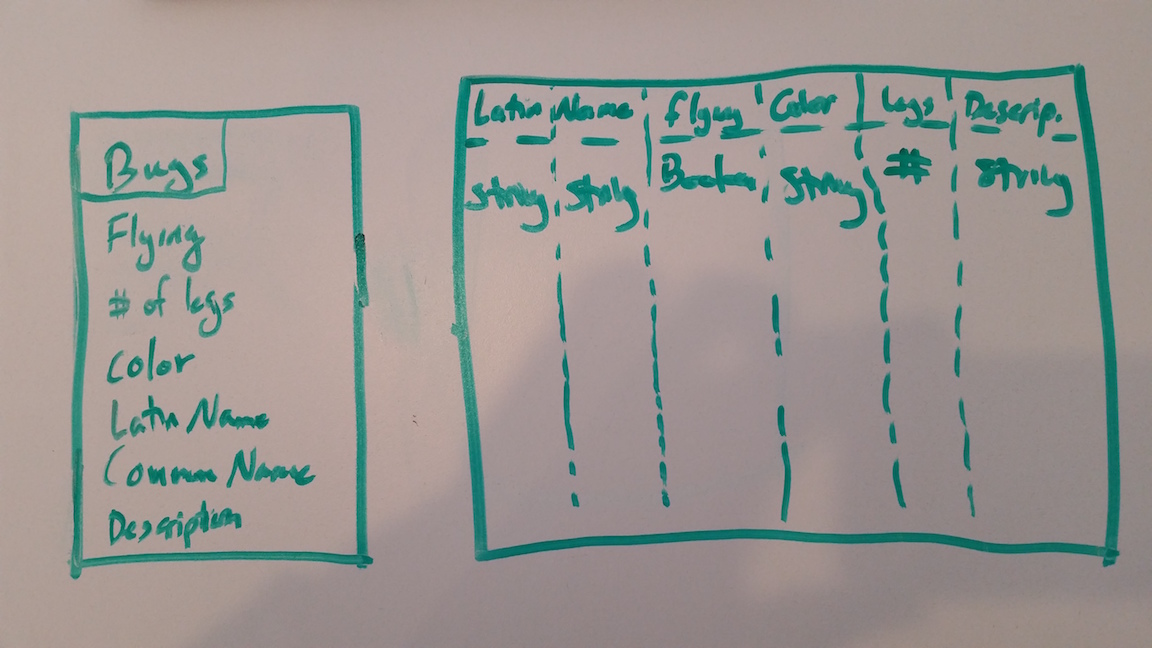 Bugs
Flying
# of legs
Color
Latin Name
Common Name
Description
Latin Name Flying Color legs Descrip.
String String Boolean String # String